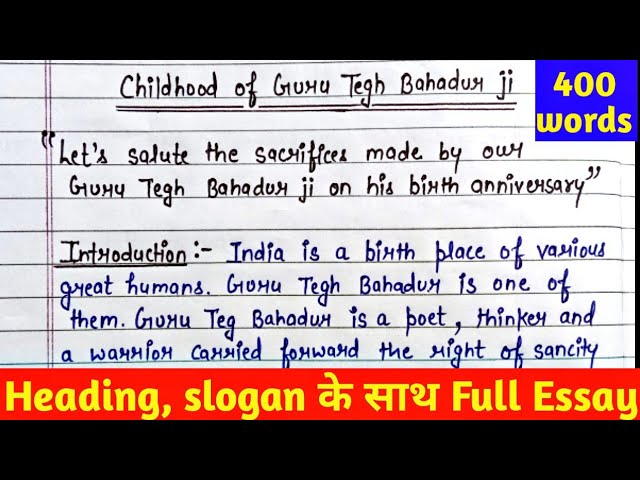 Childhood of Guru Tegh Bahadur ji
400
words
"Let's salute the sacrifices made by our
Guru Tegh Bahadur ji on his birth anniversary"
Introduction :- India is a birth place of various
great humans. Guru Tegh Bahadur is one of
them. Guru Teg Bahadur is a poet, thinker and
a warrior carried forward the right of sancity
Heading, slogan के साथ Full Essay